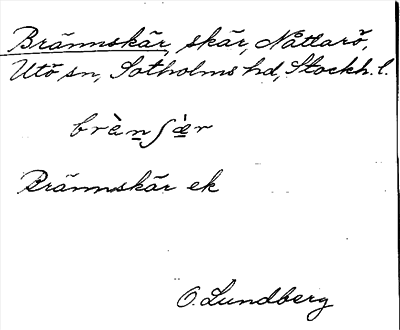 Brännskär, skär, Nåttarö,
Utö sn, Sotholms hd, Stockh. l.
brä̀nʃæ̀r
Brännskär ek
O. Lundberg